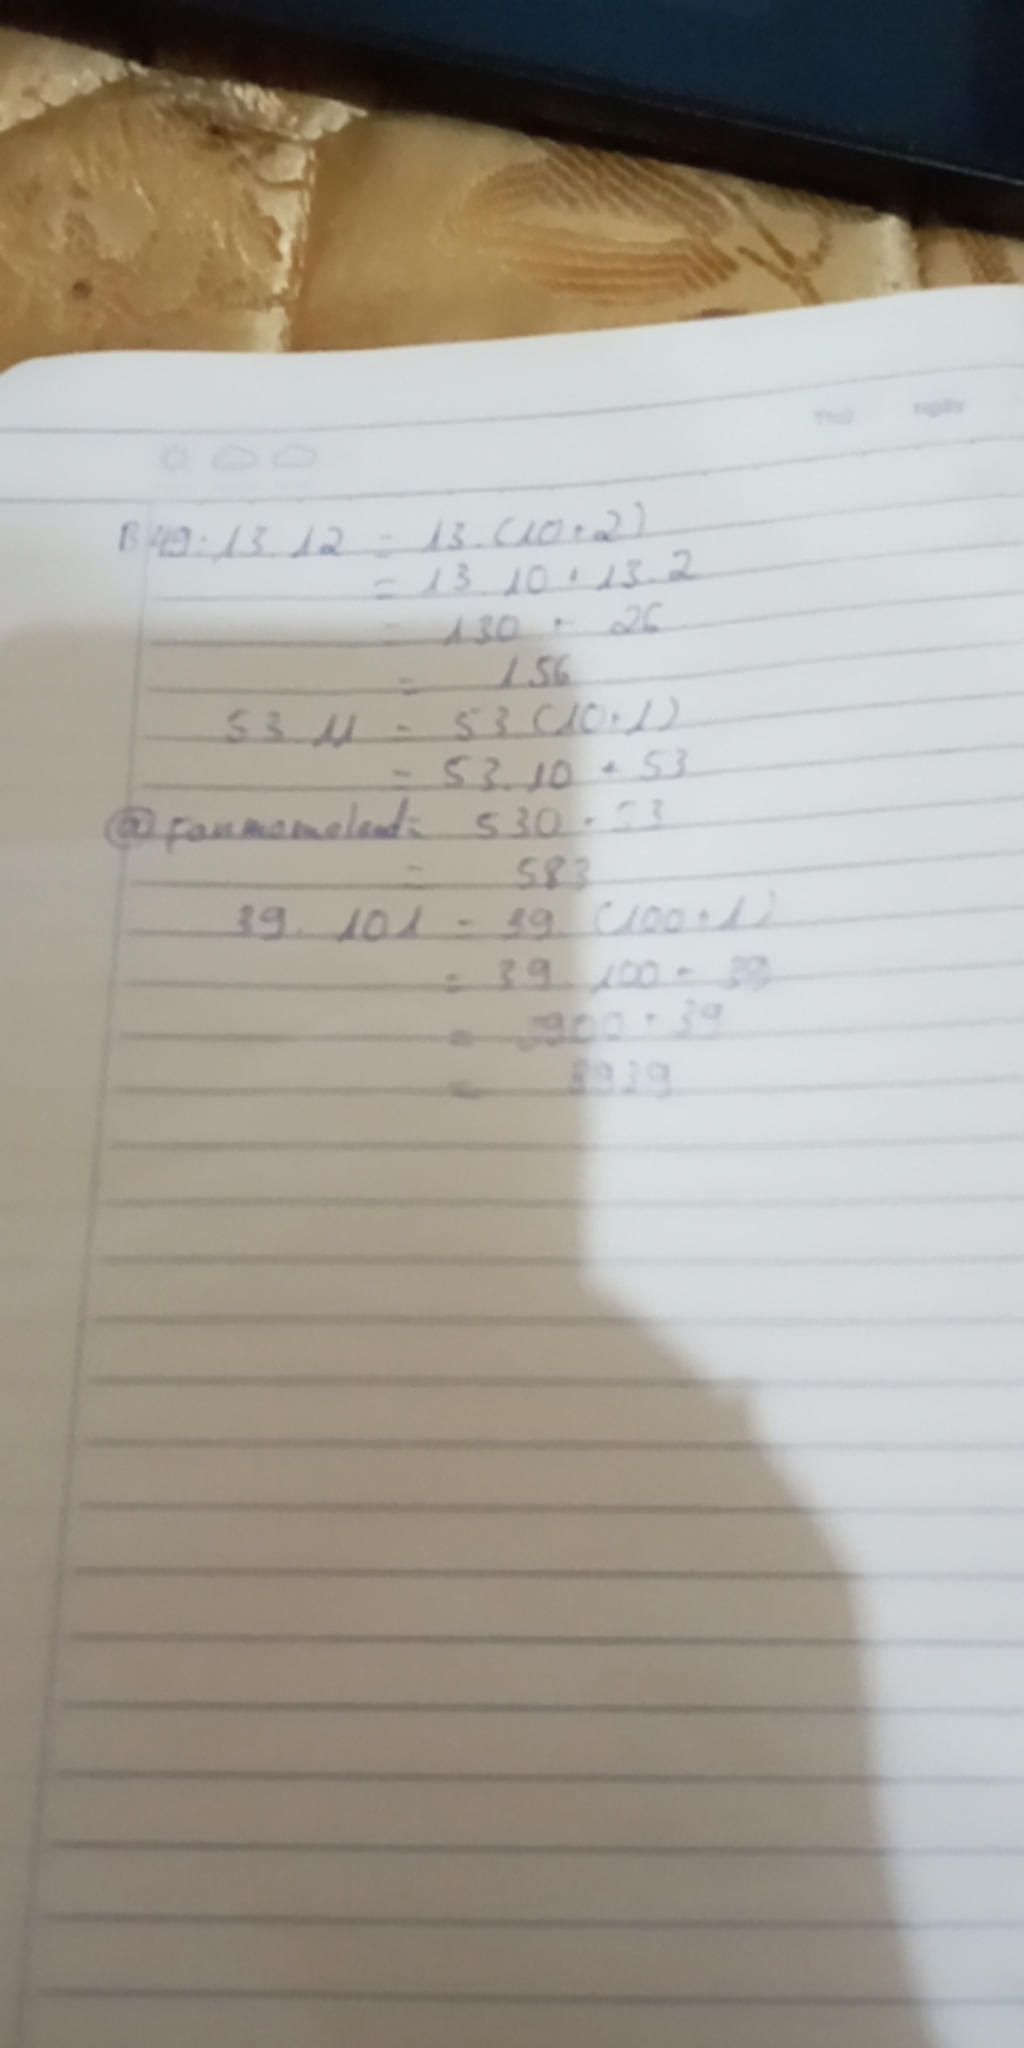 Thứ Ngày
B 49: 13.12 = 13.(10+2)
= 13.10+13.2
= 130 + 26
= 156
53.11 = 53(10+1)
= 53.10 + 53
= 530 + 53
= 583
39.101 = 39.(100+1)
= 39.100 + 39
= 3900 + 39
= 3939